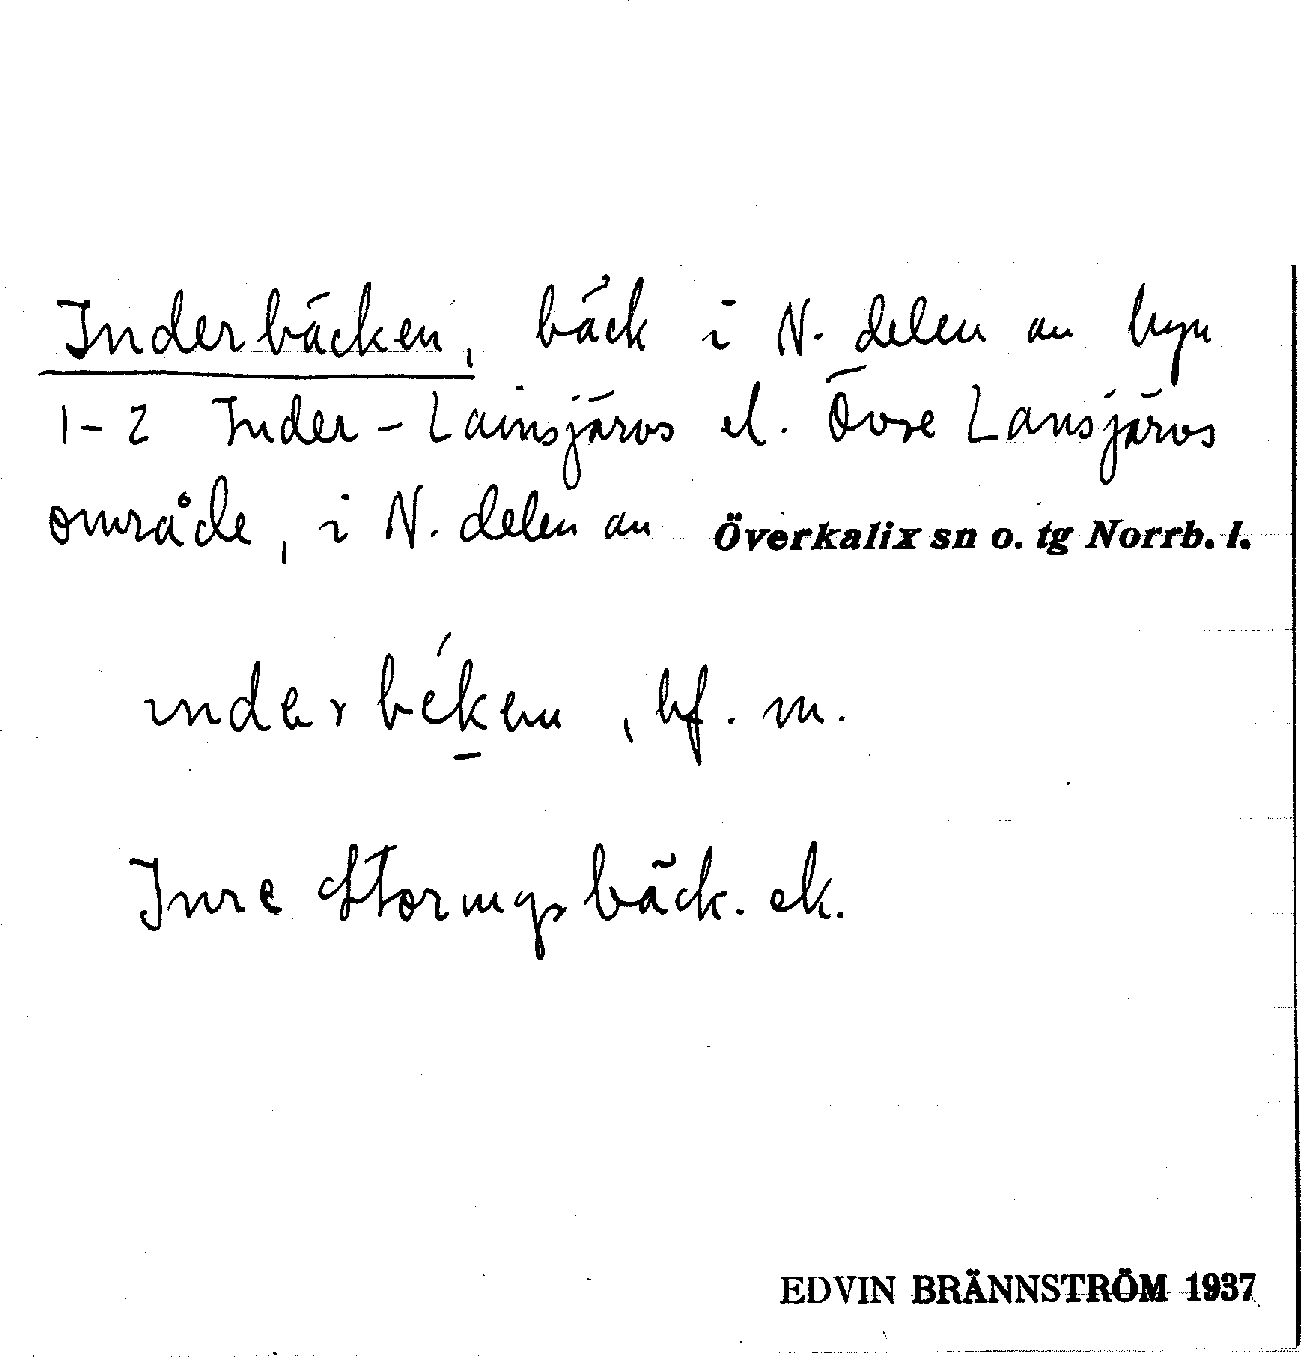 Inderbäcken, bäck i N. delen av byn
1-2 Inder-Lainsjärvs el. Övre Lansjärvs
område, i N. delen av Överkalix sn o. tg Norrb. l.
ındərbék̠en, bf. m.
Inre Storingsbäck. ek.
EDVIN BRÄNNSTRÖM 1937